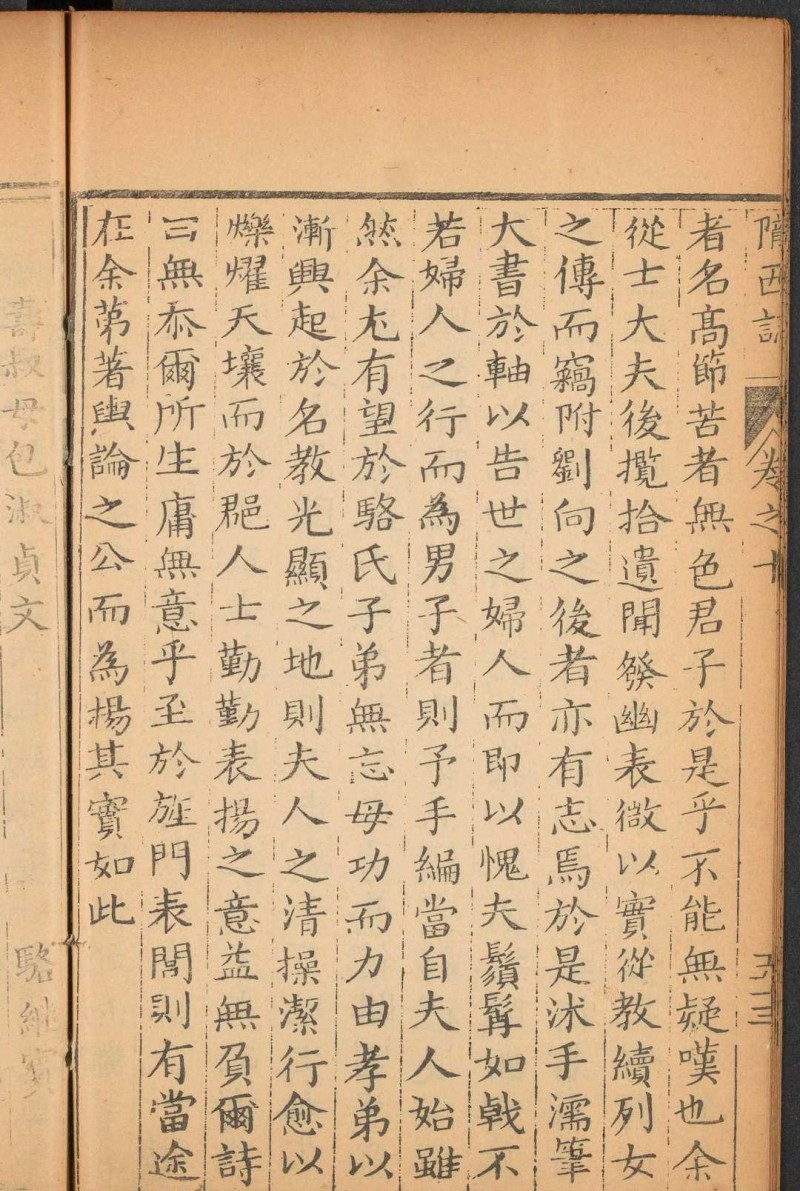 隋西記 卷之十
者名高節苦者無色君子於是乎不能無疑嘆也余
從士大夫後攬拾遺聞發幽表微以實從教續列女
之傳而竊附劉向之後者亦有志焉於是沐手濡筆
大書於軸以告世之婦人而即以愧夫鬚髯如戟不
若婦人之行而為男子者則予手編當自夫人始雖
然余尤有望於駱氏子弟無忘母功而力由孝弟以
漸興起於名教光顯之地則夫人之清操潔行愈以
爍燿天壤而於郡人士勤勤表揚之意益無負爾詩
云無忝爾所生庸無意乎至於旌門表閭則有當途
在余第著輿論之公而為揚其實如此
壽叔母包淑貞文
駱繼賓